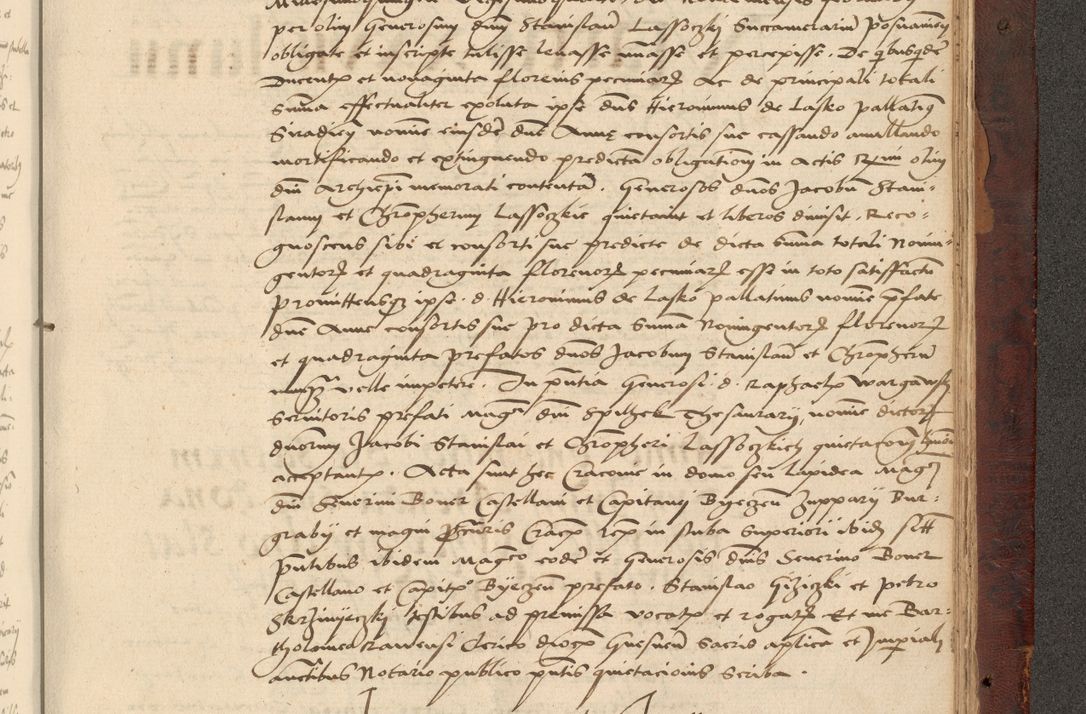 per olim Generosum dnm Stanislaum Lassoczki Succamerarium Posnaniensem
obligate et inscripte tulisse levasse unasse et percepisse. De quibusquidem
Ducentis et nonaginta florenis pecuniarum Ac de principali totali
Summa effectualiter exoluta ipse dns Hieronimus de Lasko Pallatinus
Siradiensis nomine eiusdem dne Anne consortis sue cassando annullando
mortificando et extinguendo predictam obligationem in Actis olim
dni Archiepi memorati contentam. Generosos dnos Jacobum Stani-
slaum et Chropherum Lassoczkie quietavit et liberos dimisit. Reco-
gnoscens sibi et consorti sue predicte de dicta summa totali Nonin-
gentorum et quadraginta florenorum pecuniarum esse in toto satisfactum
Promittensque ipse d. Hieronimus de Lasko pallatinus nomine prefate
dne Anne consortis sue pro dicta Summa Noningentorum florenorum
et quadraginta prefatos dnos Jacobum Stanislaum et Chropherum
nunquam velle impetere. In pntia Generosi d. Raphaelis Wargawski
Servitoris prefati Magci dni Spithek Thesaurarii, nomine dictorum
dnorum Jacobi Stanislai et Chropheri Lassoczkich quietacionem
acceptantis. Acta sunt hec Cracovie in domo seu lapidea Magci
dni Severini Boner Castellani et Capitanei Byeczen Zupparii Bur-
grabii et magni Procuratoris Cracovien in stuba Superiori ibidem
Pntibus ibidem Magco eodem et Generosis dnis Severino Boner
Castellano et Capitaneo Byeczen prefato. Stanislao Giziczki et Petro
Skrzinyeczki testibus ad premissa vocatis et rogatis. Et me Bar-
tholomeo Rawensi Clerico diocesis Gnesnen Sacris aplica et Imperiali
auctibus Notario publico pntis quietacionis Scriba.